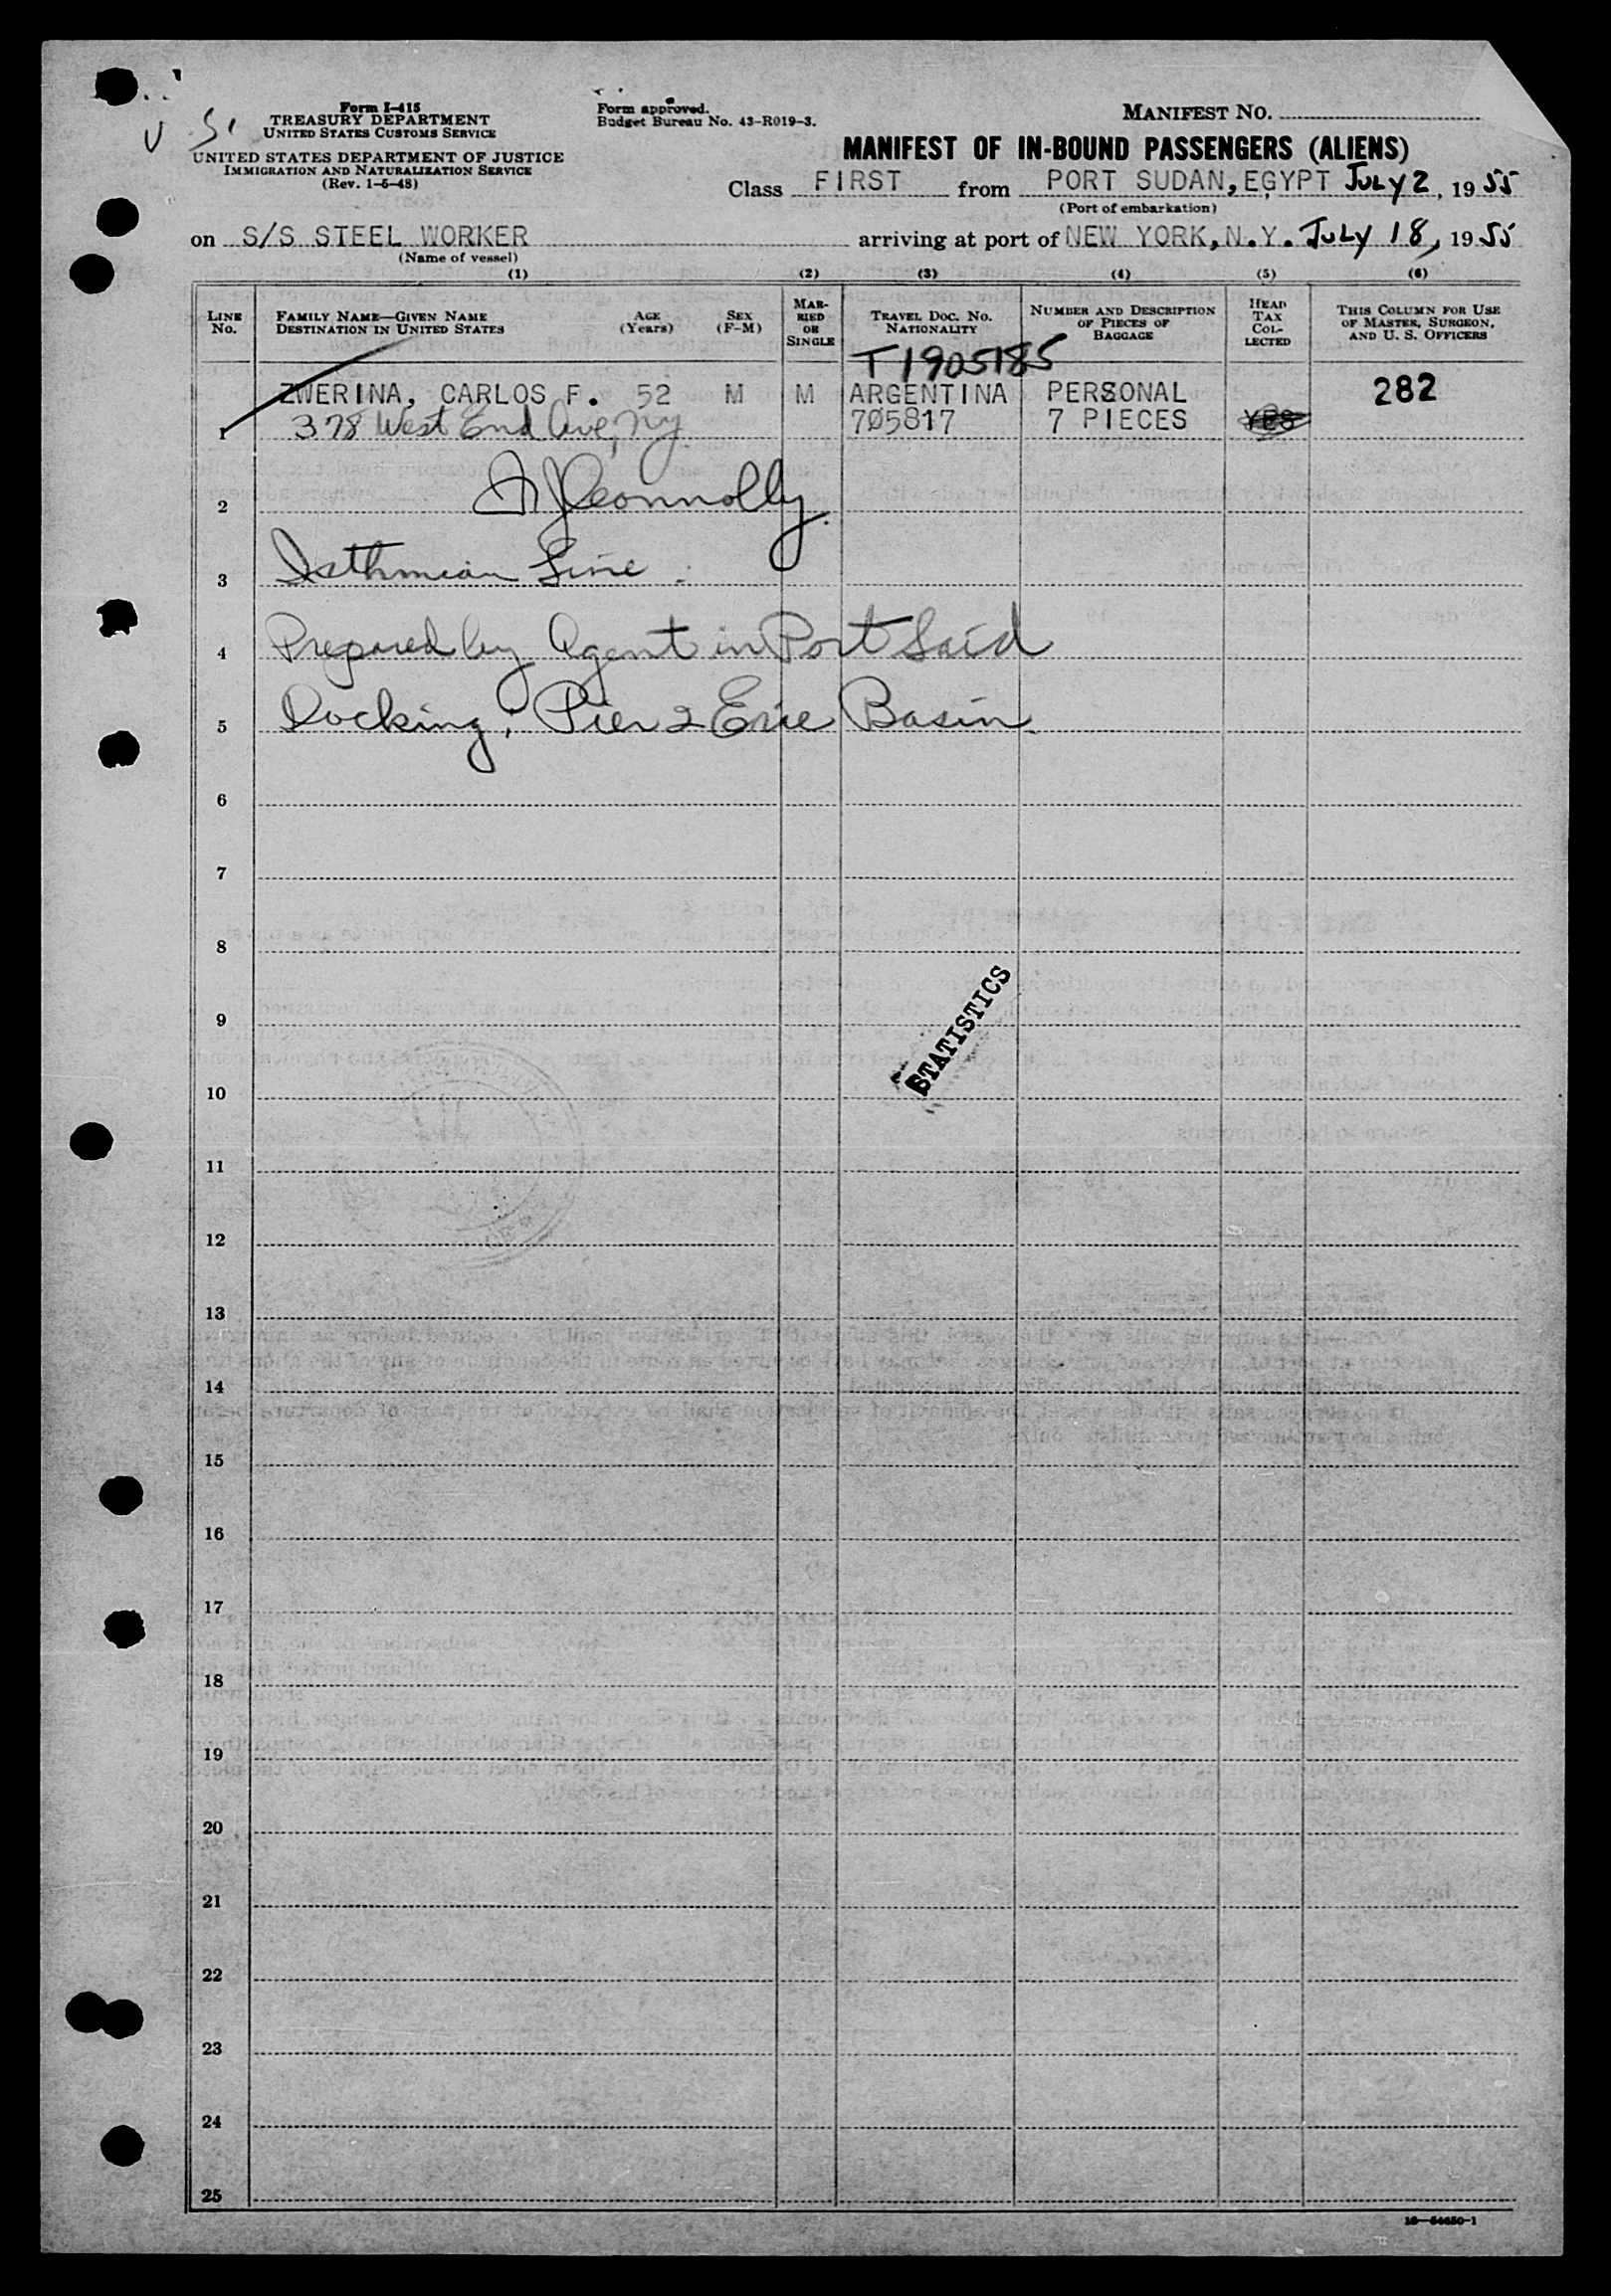 Form I-415
TREASURY DEPARTMENT
UNITED STATES CUSTOMS SERVICE
UNITED STATES DEPARTMENT OF JUSTICE
IMMIGRATION AND NATURALIZATION SERVICE
(Rev. 1-5-48)
Form approved.
Budget Bureau No. 43-R019-3.
MANIFEST NO.
MANIFEST OF IN-BOUND PASSENGERS (ALIENS)
Class FIRST from PORT SUDAN, EGYPT July 2, 1955
(Port of embarkation)
on S/S STEEL WORKER arriving at port of NEW YORK, N.Y. July 18, 1955
(Name of vessel)
(1) (2) (3) (4) (5) (6)
LINE No. FAMILY NAME—GIVEN NAME DESTINATION IN UNITED STATES AGE (Years) SEX (F-M) MARRIED OR SINGLE TRAVEL DOC. NO. NATIONALITY NUMBER AND DESCRIPTION OF PIECES OF BAGGAGE HEAD TAX COLLECTED THIS COLUMN FOR USE OF MASTER, SURGEON, AND U. S. OFFICERS
T1905185
ZWERINA, CARLOS F. 52 M M ARGENTINA PERSONAL 282
1 378 West End Ave, Ny 705817 7 PIECES YES
2 Connolly
3 Isthmian Line
4 Prepared by Agent in Port Said
5 Docking, Pier 2 Erie Basin.
6
7
8
9
STATISTICS
10
11
12
13
14
15
16
17
18
19
20
21
22
23
24
25